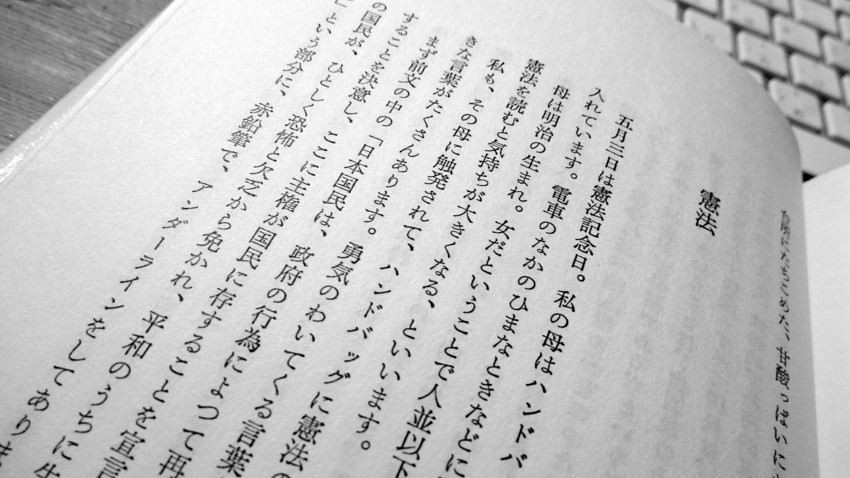 憲法
五月三日は憲法記念日。私の母はハンドバ
入れています。電車のなかのひまなときなどに
母は明治の生まれ。女だということで人並以下
憲法を読むと気持ちが大きくなる、といいます。
私も、その母に触発されて、ハンドバッグに憲法の
きな言葉がたくさんあります。勇気のわいてくる言葉
まず前文の中の「日本国民は、政府の行為によつて再
することを決意し、ここに主権が国民に存することを宣言
の国民が、ひとしく恐怖と欠乏から免かれ、平和のうちに生
」という部分に、赤鉛筆で、アンダーラインをしてありま